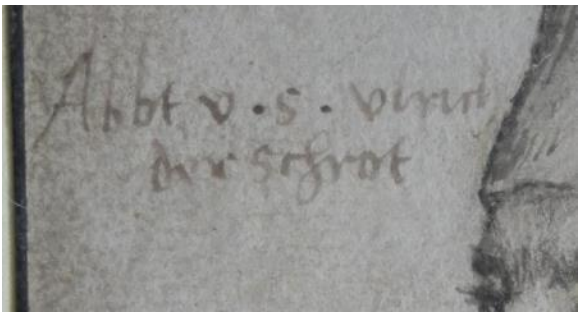 Abbt v · S · vlrich
der Schrot